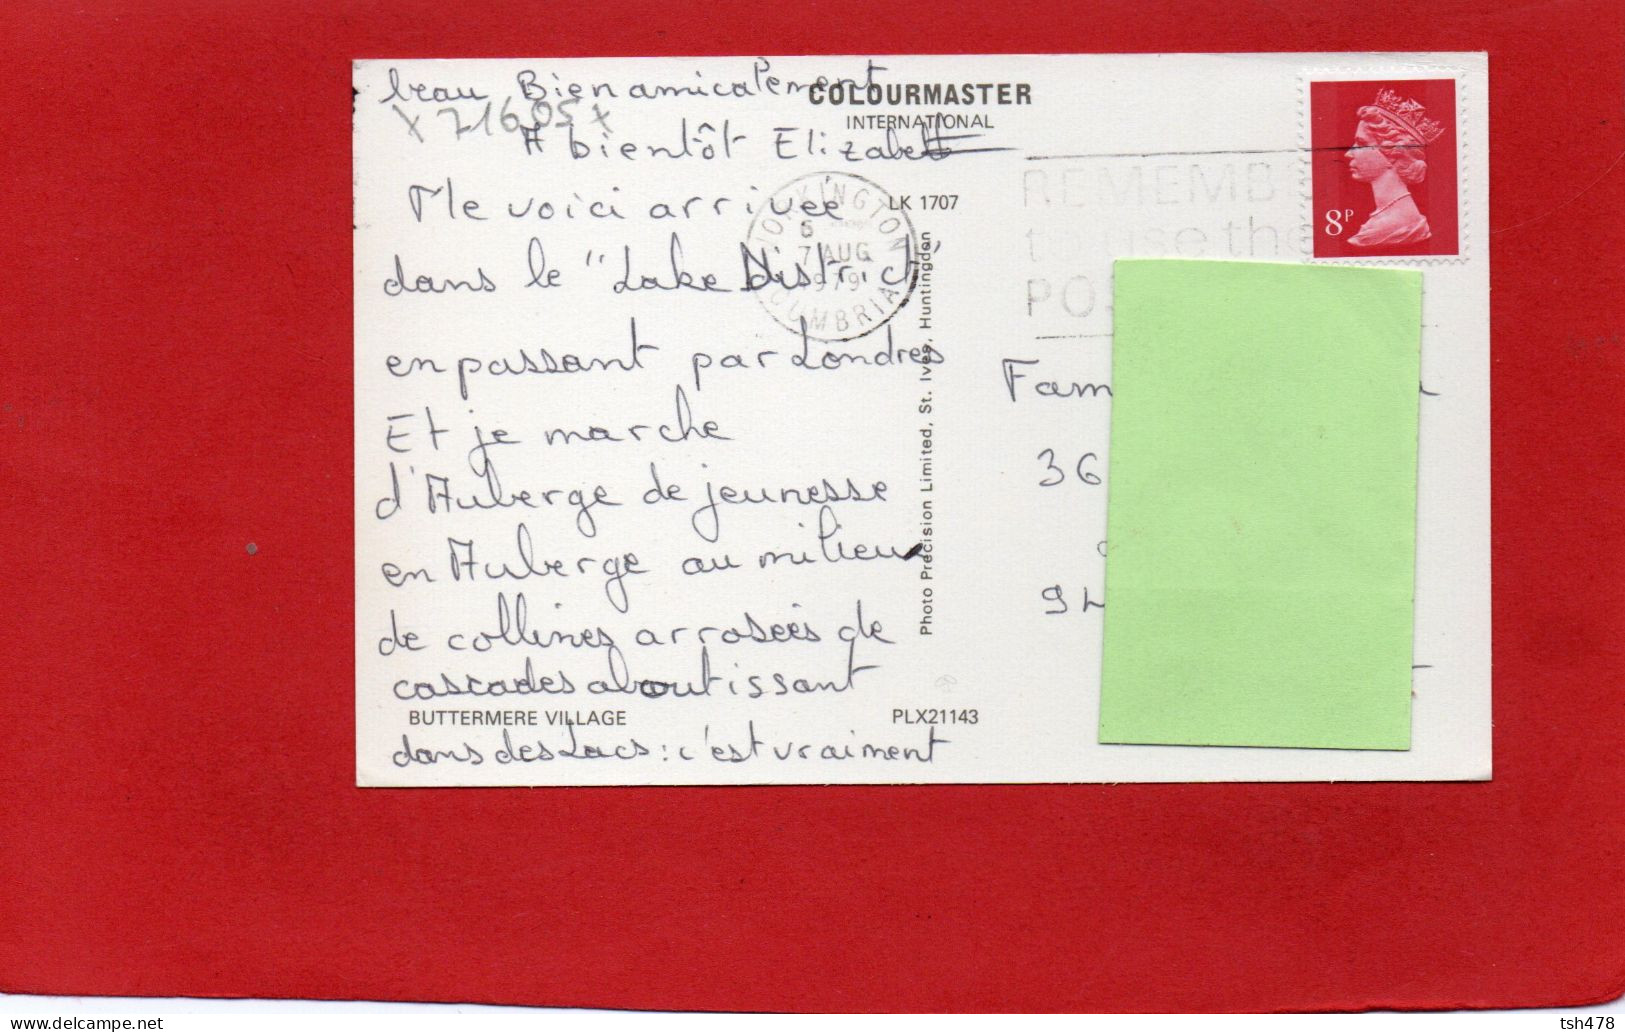 beau Bien amicalement
x 71605 x
A bientôt Elizabeth
COLOURMASTER
INTERNATIONAL
LK 1707
Me voici arrivée
dans le "Lake District"
en passant par Londres
Et je marche
d'Auberge de jeunesse
en Auberge au milieu
de collines arrosées de
cascades aboutissant
BUTTERMERE VILLAGE
PLX21143
dans des Lacs : c'est vraiment
Photo Precision Limited, St. Ives, Huntingdon
WORKINGTON
7 AUG
1979
CUMBRIA
REMEMB
to use the
PO
8P
Fam
36
94
tsh478